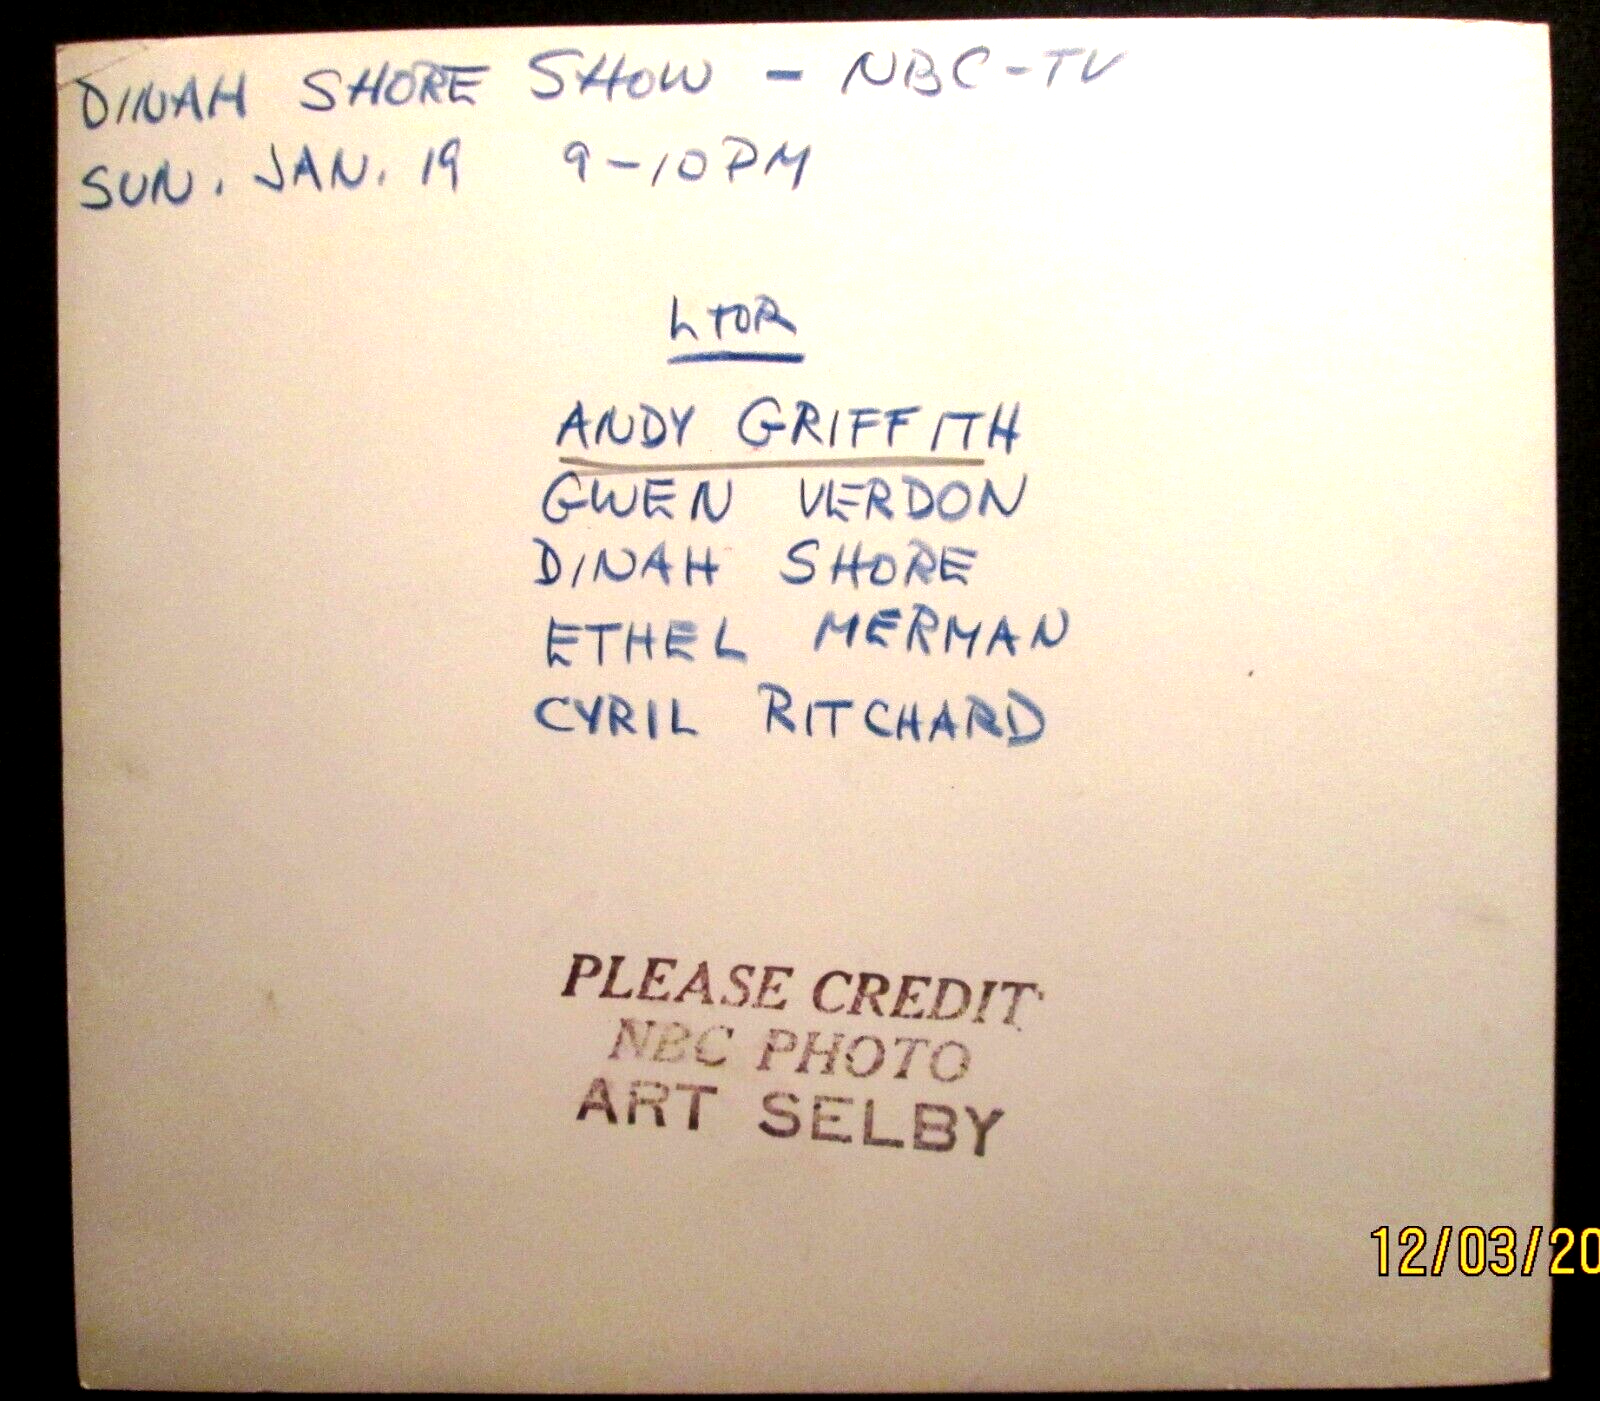 DINAH SHORE SHOW - NBC-TV
SUN. JAN. 19 9-10PM
L TO R
ANDY GRIFFITH
GWEN VERDON
DINAH SHORE
ETHEL MERMAN
CYRIL RITCHARD
PLEASE CREDIT
NBC PHOTO
ART SELBY
12/03/20